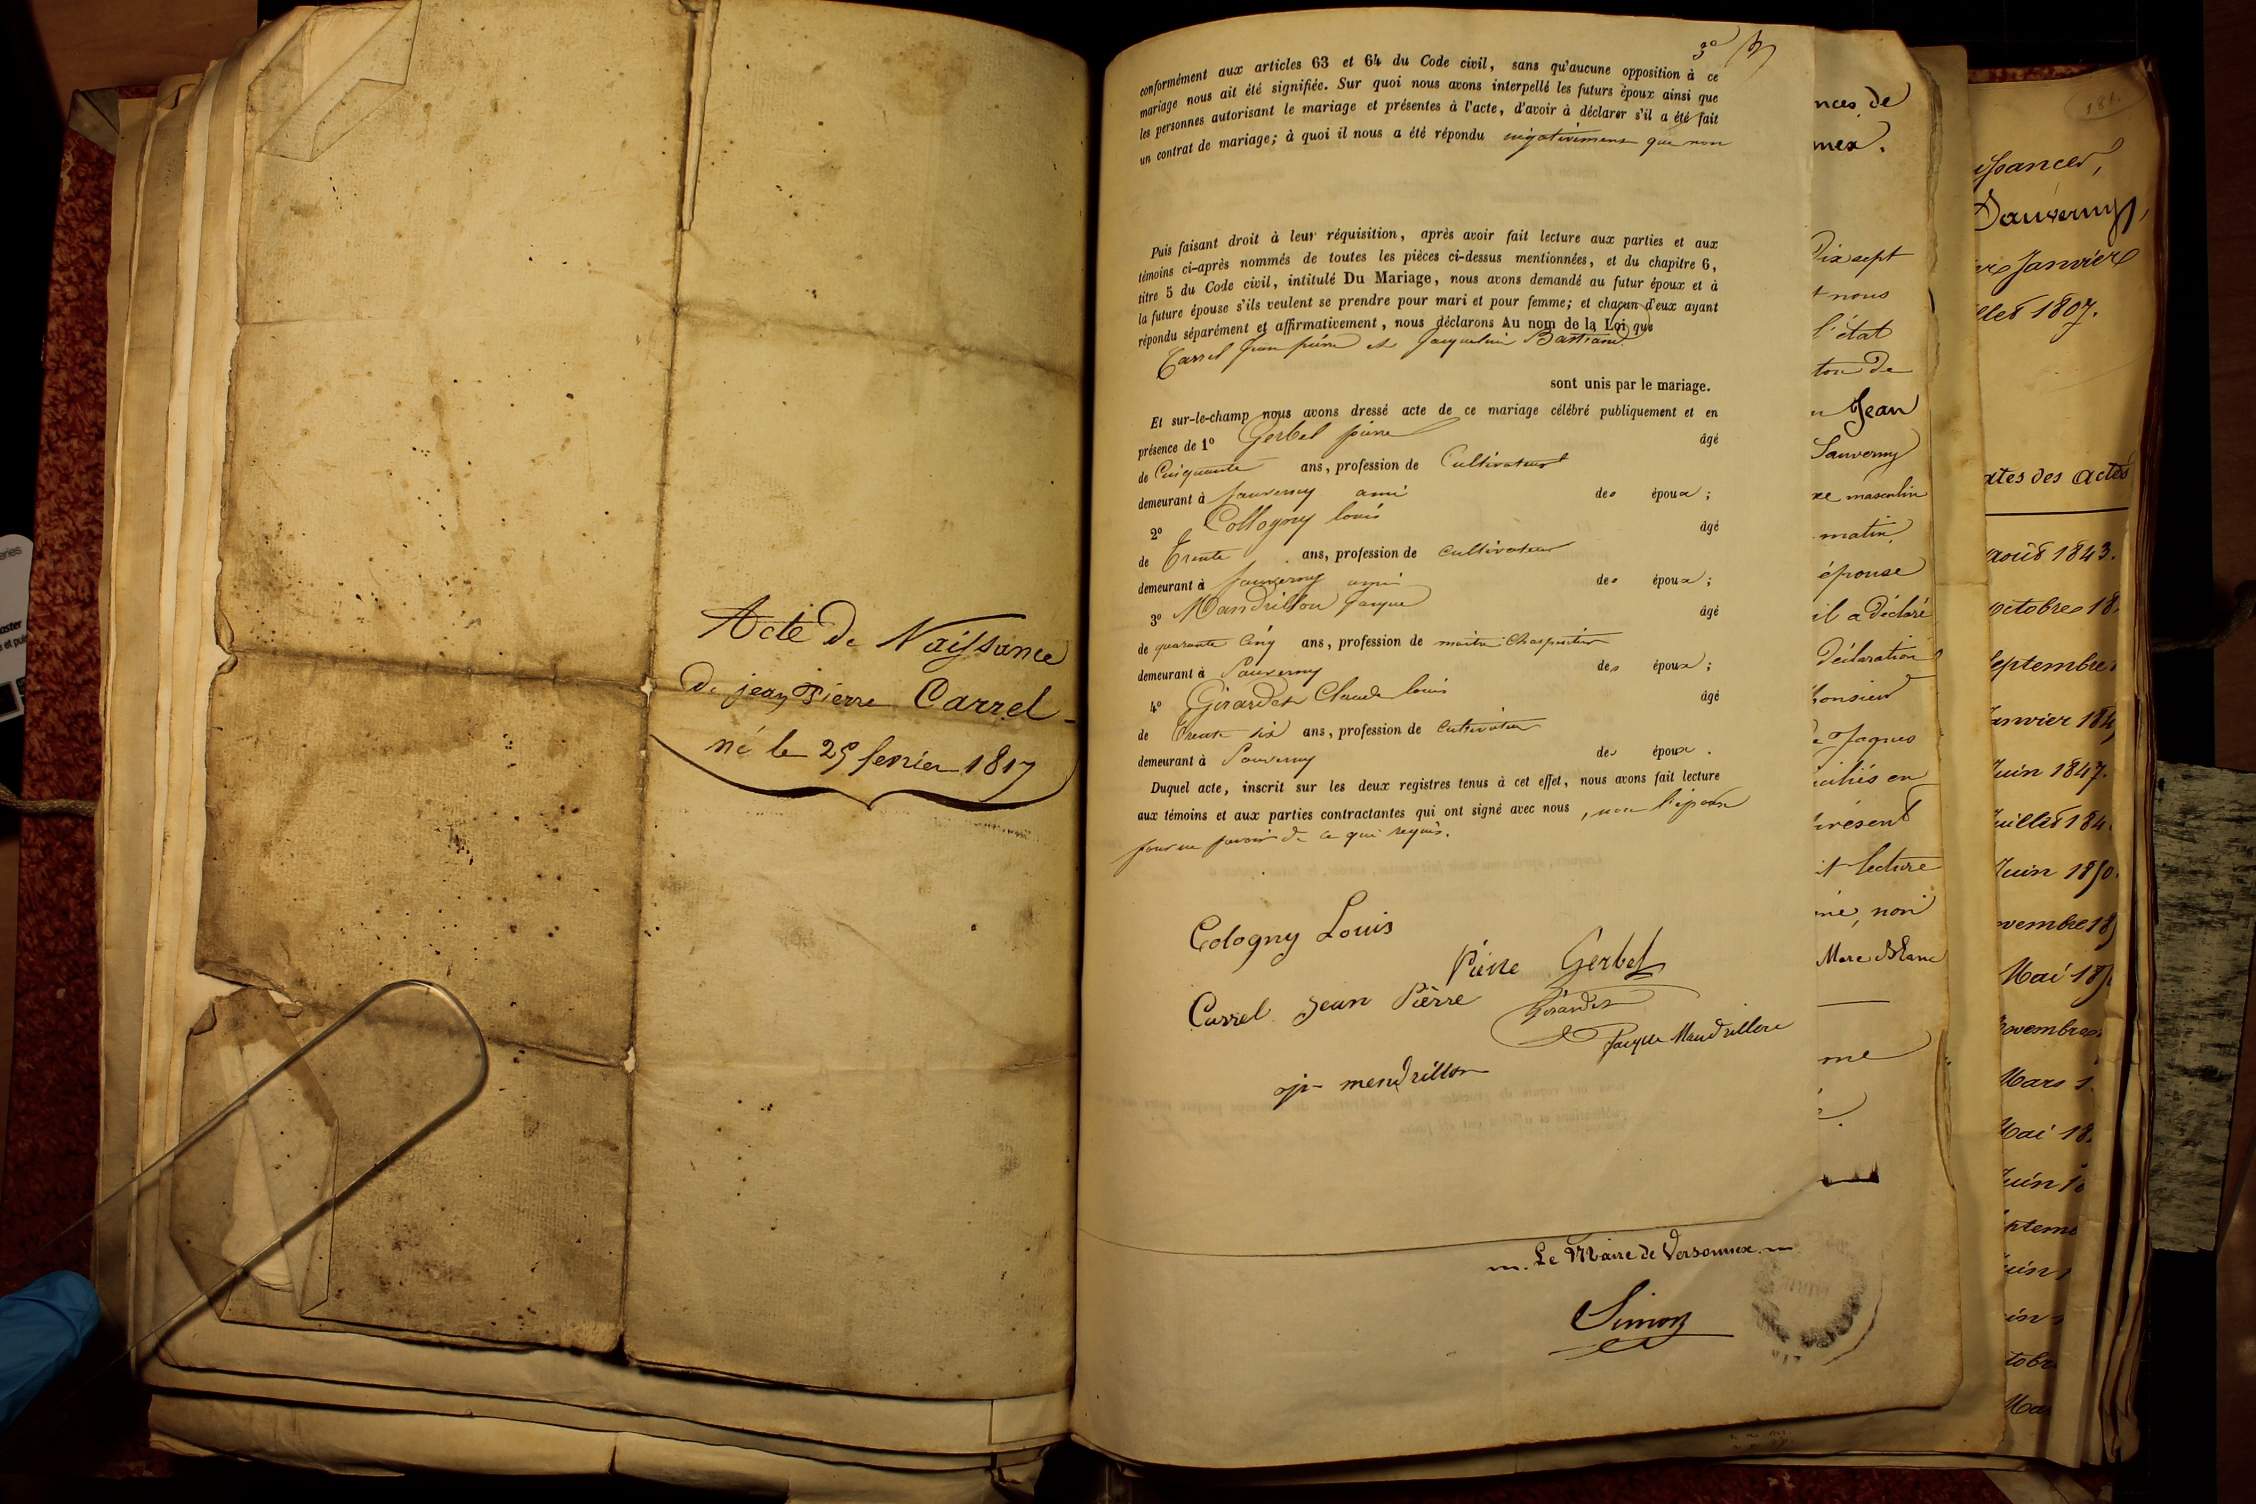 Acte De Naissance
De jean Pierre Carrel
né le 25 fevrier 1817
3°
conformément aux articles 63 et 64 du Code civil, sans qu'aucune opposition à ce
mariage nous ait été signifiée. Sur quoi nous avons interpellé les futurs époux ainsi que
les personnes autorisant le mariage et présentes à l'acte, d'avoir à déclarer s'il a été fait
un contrat de mariage; à quoi il nous a été répondu négativement que non
Puis faisant droit à leur réquisition, après avoir fait lecture aux parties et aux
témoins ci-après nommés de toutes les pièces ci-dessus mentionnées, et du chapitre 6,
titre 5 du Code civil, intitulé Du Mariage, nous avons demandé au futur époux et à
la future épouse s'ils veulent se prendre pour mari et pour femme; et chacun d'eux ayant
répondu séparément et affirmativement, nous déclarons Au nom de la Loi que
Carrel Jean pierre et Jacqueline Bastian
sont unis par le mariage.
Et sur-le-champ nous avons dressé acte de ce mariage célébré publiquement et en
présence de 1° Gerbel pierre âgé
de Cinquante ans, profession de Cultivateur
demeurant à Sauverny ami des époux;
2° Collogny louis âgé
de Trente ans, profession de cultivateur
demeurant à Sauverny ami des époux;
3° Mandrillon Jacque âgé
de quarante cinq ans, profession de maitre Charpentier
demeurant à Sauverny des époux;
4° Girardet Claude louis âgé
de Trente six ans, profession de cultivateur
demeurant à Sauverny des époux.
Duquel acte, inscrit sur les deux registres tenus à cet effet, nous avons fait lecture
aux témoins et aux parties contractantes qui ont signé avec nous, non l'épouse
pour ne savoir de ce qui requis.
Cologny Louis
Pierre Gerbel
Carrel Jean Pierre
Girardet
Jacque Mandrillon
mendrillon
Le Maire de Versonnex
Simon
nces de
nex.
Dix sept
t nous
l'état
ton de
Jean
Sauverny
xe masculin
matin
épouse
il a déclaré
déclaration
onsieur
Jaques
ciliés en
présent
it lecture
né, non
Marc Blanc
me
181.
issances,
Sauverny,
er Janvier
llet 1807.
ates des actes
août 1843.
octobre 18
septembre
Janvier 184
Juin 1847.
Juillet 184
Juin 1850.
ovembre 18
Mai 185
Novembre
Mars
Mai 18
Juin 18
eptem
uin
in
tobr
Ma